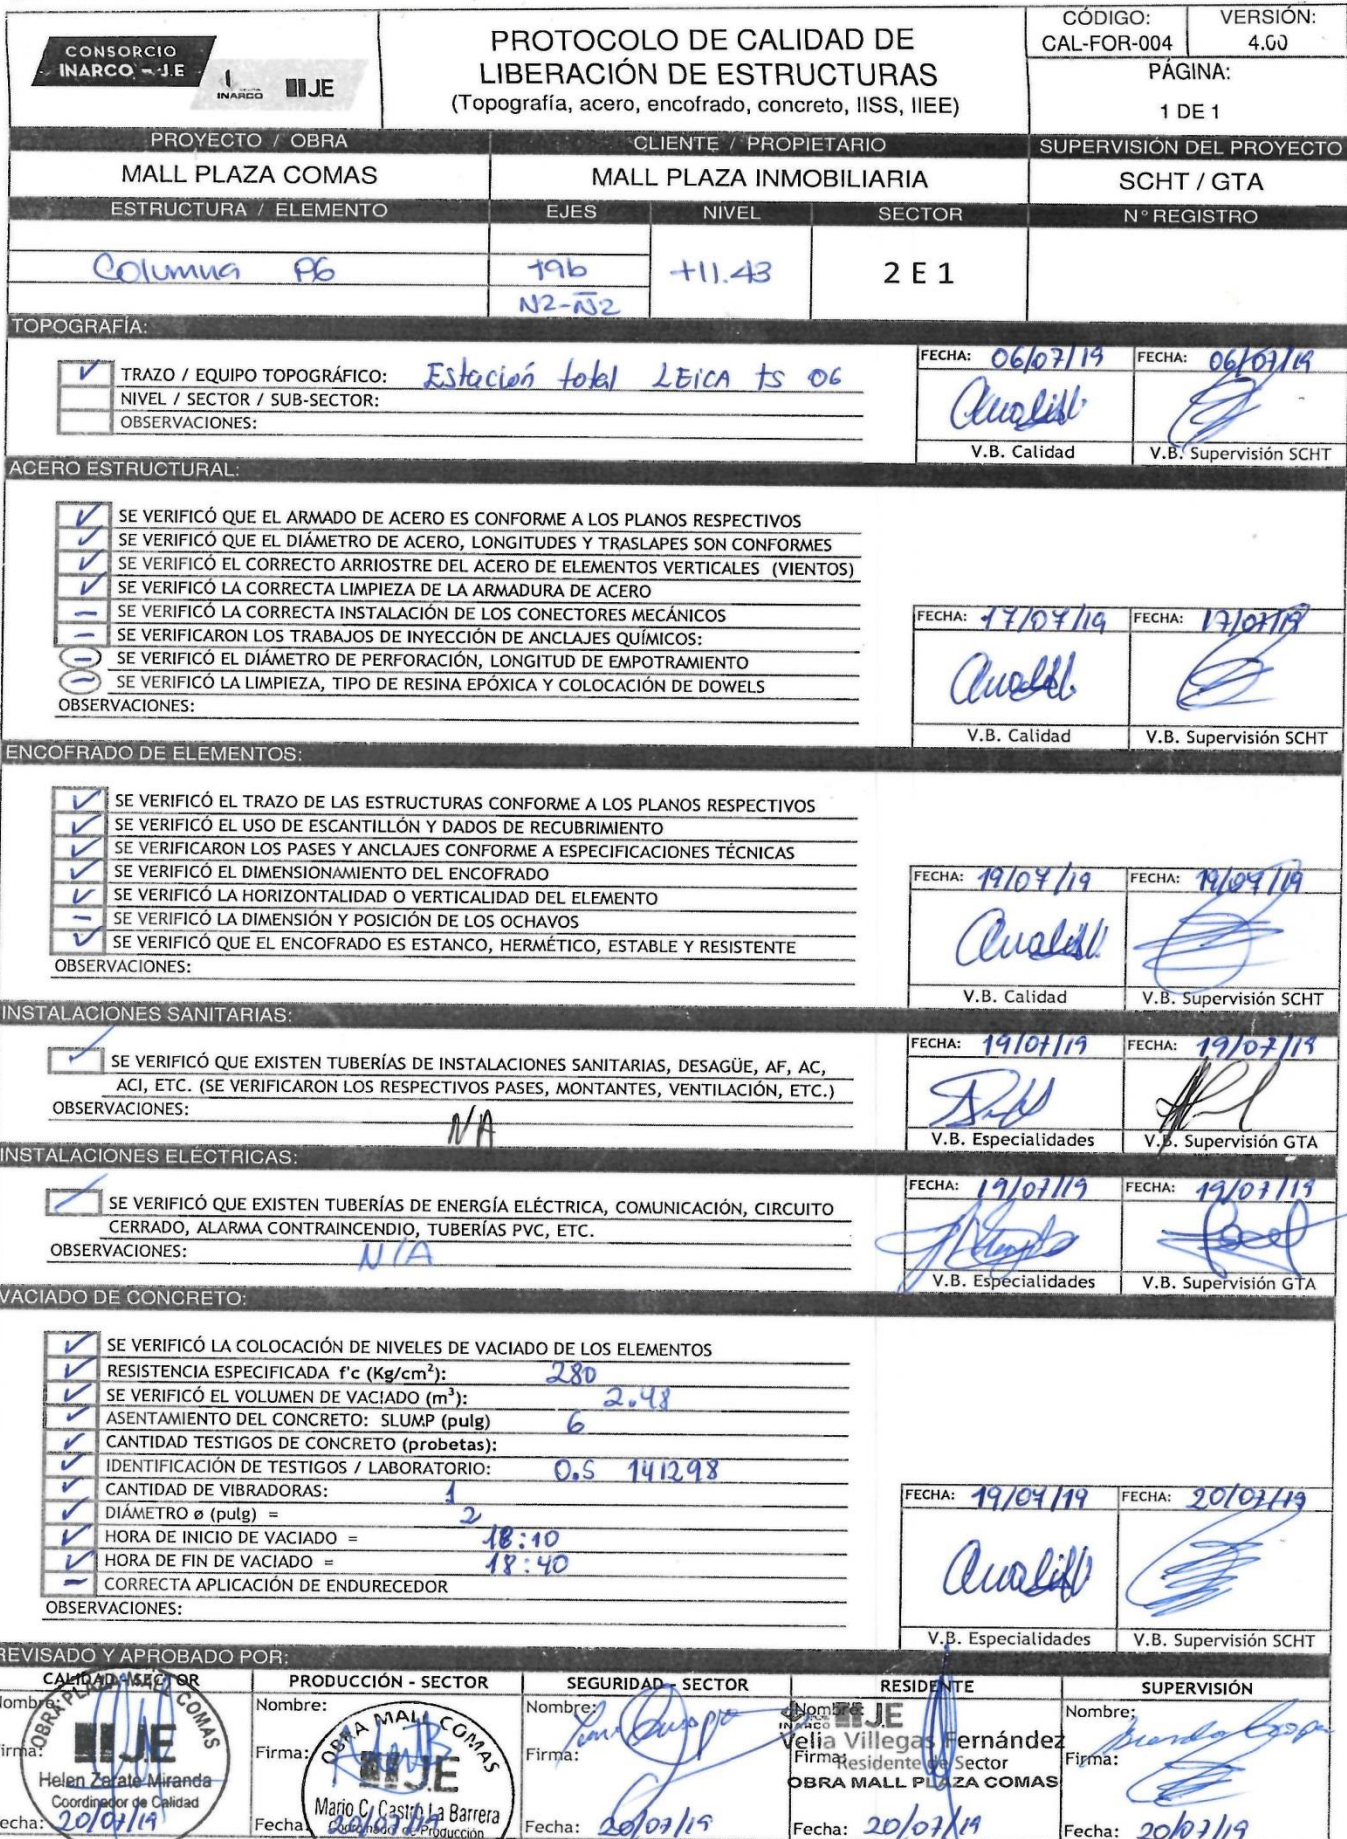 CONSORCIO
INARCO - J.E
INARCO JE
PROTOCOLO DE CALIDAD DE
LIBERACIÓN DE ESTRUCTURAS
(Topografía, acero, encofrado, concreto, IISS, IIEE)
CÓDIGO: VERSIÓN:
CAL-FOR-004 4.00
PÁGINA:
1 DE 1
PROYECTO / OBRA CLIENTE / PROPIETARIO SUPERVISIÓN DEL PROYECTO
MALL PLAZA COMAS MALL PLAZA INMOBILIARIA SCHT / GTA
ESTRUCTURA / ELEMENTO EJES NIVEL SECTOR N° REGISTRO
Columna P6 +9b +11.43 2 E 1
N2-N̄2
TOPOGRAFÍA:
FECHA: 06/07/19 FECHA: 06/07/19
TRAZO / EQUIPO TOPOGRÁFICO: Estación total LEICA ts 06
NIVEL / SECTOR / SUB-SECTOR:
OBSERVACIONES:
V.B. Calidad V.B. Supervisión SCHT
ACERO ESTRUCTURAL:
SE VERIFICÓ QUE EL ARMADO DE ACERO ES CONFORME A LOS PLANOS RESPECTIVOS
SE VERIFICÓ QUE EL DIÁMETRO DE ACERO, LONGITUDES Y TRASLAPES SON CONFORMES
SE VERIFICÓ EL CORRECTO ARRIOSTRE DEL ACERO DE ELEMENTOS VERTICALES (VIENTOS)
SE VERIFICÓ LA CORRECTA LIMPIEZA DE LA ARMADURA DE ACERO
SE VERIFICÓ LA CORRECTA INSTALACIÓN DE LOS CONECTORES MECÁNICOS
SE VERIFICARON LOS TRABAJOS DE INYECCIÓN DE ANCLAJES QUÍMICOS:
SE VERIFICÓ EL DIÁMETRO DE PERFORACIÓN, LONGITUD DE EMPOTRAMIENTO
SE VERIFICÓ LA LIMPIEZA, TIPO DE RESINA EPÓXICA Y COLOCACIÓN DE DOWELS
OBSERVACIONES:
FECHA: 17/07/19 FECHA: 17/07/19
V.B. Calidad V.B. Supervisión SCHT
ENCOFRADO DE ELEMENTOS:
SE VERIFICÓ EL TRAZO DE LAS ESTRUCTURAS CONFORME A LOS PLANOS RESPECTIVOS
SE VERIFICÓ EL USO DE ESCANTILLÓN Y DADOS DE RECUBRIMIENTO
SE VERIFICARON LOS PASES Y ANCLAJES CONFORME A ESPECIFICACIONES TÉCNICAS
SE VERIFICÓ EL DIMENSIONAMIENTO DEL ENCOFRADO
SE VERIFICÓ LA HORIZONTALIDAD O VERTICALIDAD DEL ELEMENTO
SE VERIFICÓ LA DIMENSIÓN Y POSICIÓN DE LOS OCHAVOS
SE VERIFICÓ QUE EL ENCOFRADO ES ESTANCO, HERMÉTICO, ESTABLE Y RESISTENTE
OBSERVACIONES:
FECHA: 19/07/19 FECHA: 19/07/19
V.B. Calidad V.B. Supervisión SCHT
INSTALACIONES SANITARIAS:
SE VERIFICÓ QUE EXISTEN TUBERÍAS DE INSTALACIONES SANITARIAS, DESAGÜE, AF, AC,
ACI, ETC. (SE VERIFICARON LOS RESPECTIVOS PASES, MONTANTES, VENTILACIÓN, ETC.)
OBSERVACIONES: N/A
FECHA: 19/07/19 FECHA: 19/07/19
V.B. Especialidades V.B. Supervisión GTA
INSTALACIONES ELÉCTRICAS:
SE VERIFICÓ QUE EXISTEN TUBERÍAS DE ENERGÍA ELÉCTRICA, COMUNICACIÓN, CIRCUITO
CERRADO, ALARMA CONTRAINCENDIO, TUBERÍAS PVC, ETC.
OBSERVACIONES: N/A
FECHA: 19/07/19 FECHA: 19/07/19
V.B. Especialidades V.B. Supervisión GTA
VACIADO DE CONCRETO:
SE VERIFICÓ LA COLOCACIÓN DE NIVELES DE VACIADO DE LOS ELEMENTOS
RESISTENCIA ESPECIFICADA f'c (Kg/cm²): 280
SE VERIFICÓ EL VOLUMEN DE VACIADO (m³): 2.48
ASENTAMIENTO DEL CONCRETO: SLUMP (pulg) 6
CANTIDAD TESTIGOS DE CONCRETO (probetas):
IDENTIFICACIÓN DE TESTIGOS / LABORATORIO: O.S 141298
CANTIDAD DE VIBRADORAS: 1
DIÁMETRO ø (pulg) = 2
HORA DE INICIO DE VACIADO = 18:10
HORA DE FIN DE VACIADO = 18:40
CORRECTA APLICACIÓN DE ENDURECEDOR
OBSERVACIONES:
FECHA: 19/07/19 FECHA: 20/07/19
V.B. Especialidades V.B. Supervisión SCHT
REVISADO Y APROBADO POR:
CALIDAD - SECTOR PRODUCCIÓN - SECTOR SEGURIDAD - SECTOR RESIDENTE SUPERVISIÓN
Nombre: Nombre: Nombre: Nombre: Nombre:
Firma: Firma: Firma: Firma: Firma:
OBRA PLAZA MALL COMAS
JE
Helen Zarate Miranda
Coordinador de Calidad
OBRA MALL COMAS
JE
Mario C. Castro La Barrera
Coordinador de Producción
INARCO JE
Velia Villegas Fernández
Residente de Sector
OBRA MALL PLAZA COMAS
Fecha: 20/07/19 Fecha: 20/07/19 Fecha: 20/07/19 Fecha: 20/07/19 Fecha: 20/07/19